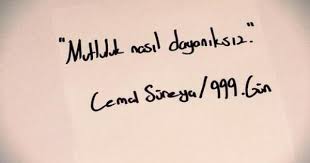 "Mutluluk nasıl dayanıksız."
Cemal Süreya/999.Gün